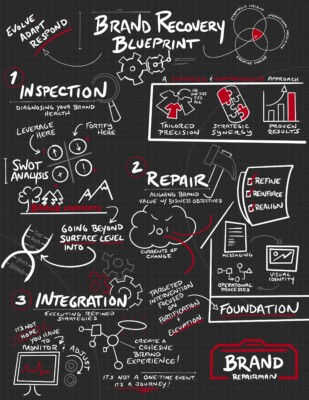 EVOLVE
ADAPT
RESPOND
BRAND RECOVERY
BLUEPRINT
1 INSPECTION
DIAGNOSING YOUR BRAND
HEALTH
LEVERAGE
HERE
FORTIFY
HERE
SWOT
ANALYSIS
GOING BEYOND
SURFACE LEVEL
INTO
APPROACH
TAILORED
PRECISION
STRATEGIC
SYNERGY
PROVEN
RESULTS
2 REPAIR
ALIGNING BRAND
VALUE W/ BUSINESS OBJECTIVES
CURRENTS OF
CHANGE
REFINE
REINFORCE
REALIGN
MESSAGING
VISUAL
IDENTITY
OPERATIONAL
PROCESSES
FOUNDATION
3 INTEGRATION
EXECUTING REFINED
STRATEGIES
TARGETED
INTERVENTION
FOCUSED
ON
FORTIFICATION
ELEVATION
IT'S NOT
YOU HAVE
TO
MONITOR + ADJUST
CREATE A
COHESIVE
BRAND
EXPERIENCE!
IT'S NOT A ONE-TIME EVENT
IT'S A JOURNEY!
BRAND
REPAIRMAN